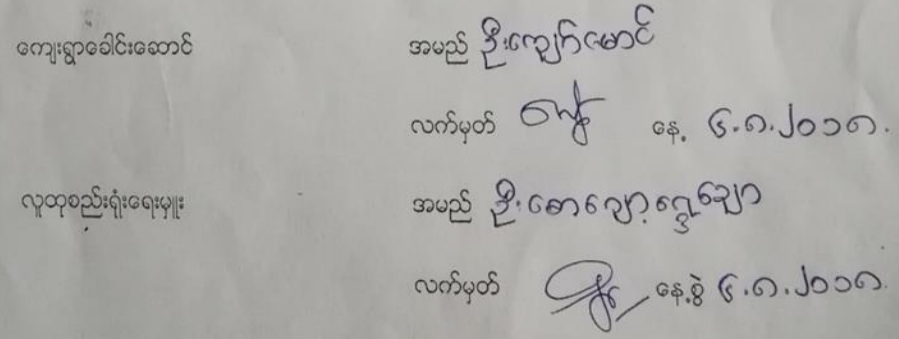 ကျေးရွာခေါင်းဆောင် အမည် ဦးကျော်မောင်
လက်မှတ် နေ့ ၆.၈.၂၀၁၈.
လူထုစည်းရုံးရေးမှူး အမည် ဦးစော
လက်မှတ် နေ့စွဲ ၆.၈.၂၀၁၈.